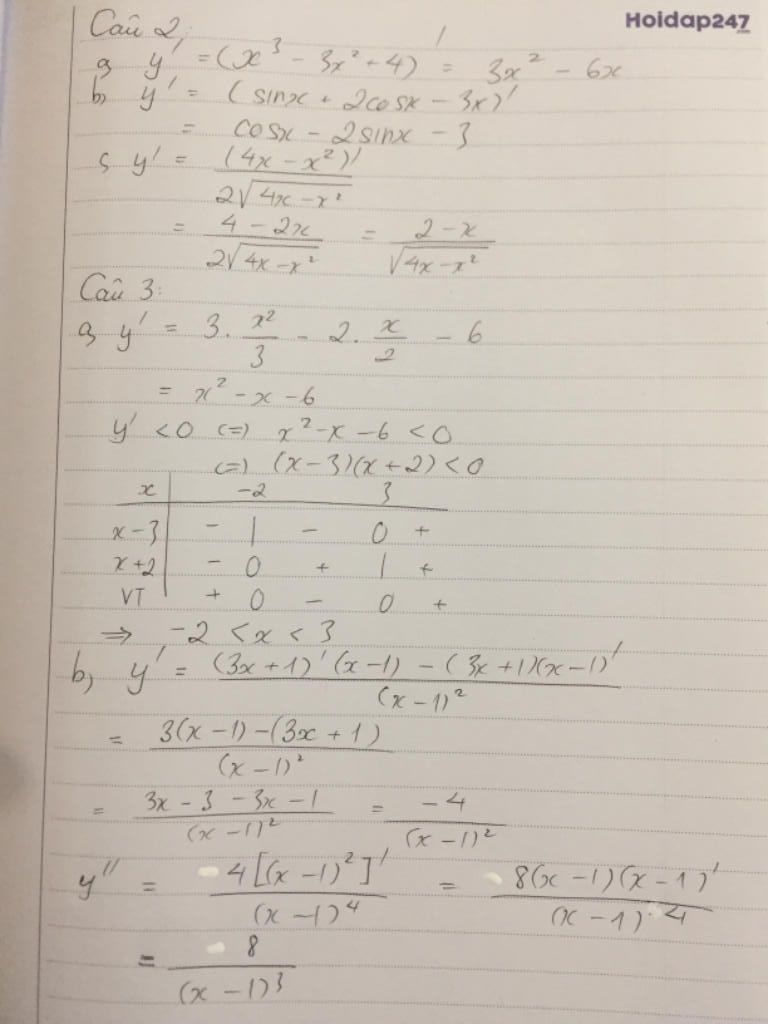 Hoidap247
Câu 2:
a, y' = (x³ - 3x² + 4)' = 3x² - 6x
b, y' = (sinx + 2cosx - 3x)'
= cosx - 2sinx - 3
c, y' = (4x - x²)' / 2√(4x - x²)
= (4 - 2x) / 2√(4x - x²) = (2 - x) / √(4x - x²)
Câu 3:
a, y' = 3. x²/3 - 2. x/2 - 6
= x² - x - 6
y' < 0 (=) x² - x - 6 < 0
(=) (x - 3)(x + 2) < 0
x | -2 3
x - 3 | - | - 0 +
x + 2 | - 0 + | +
VT | + 0 - 0 +
⇒ -2 < x < 3
b, y' = ((3x + 1)' (x - 1) - (3x + 1)(x - 1)') / (x - 1)²
= (3(x - 1) - (3x + 1)) / (x - 1)²
= (3x - 3 - 3x - 1) / (x - 1)² = -4 / (x - 1)²
y'' = 4[(x - 1)²]' / (x - 1)⁴ = 8(x - 1)(x - 1)' / (x - 1)⁴
= 8 / (x - 1)³